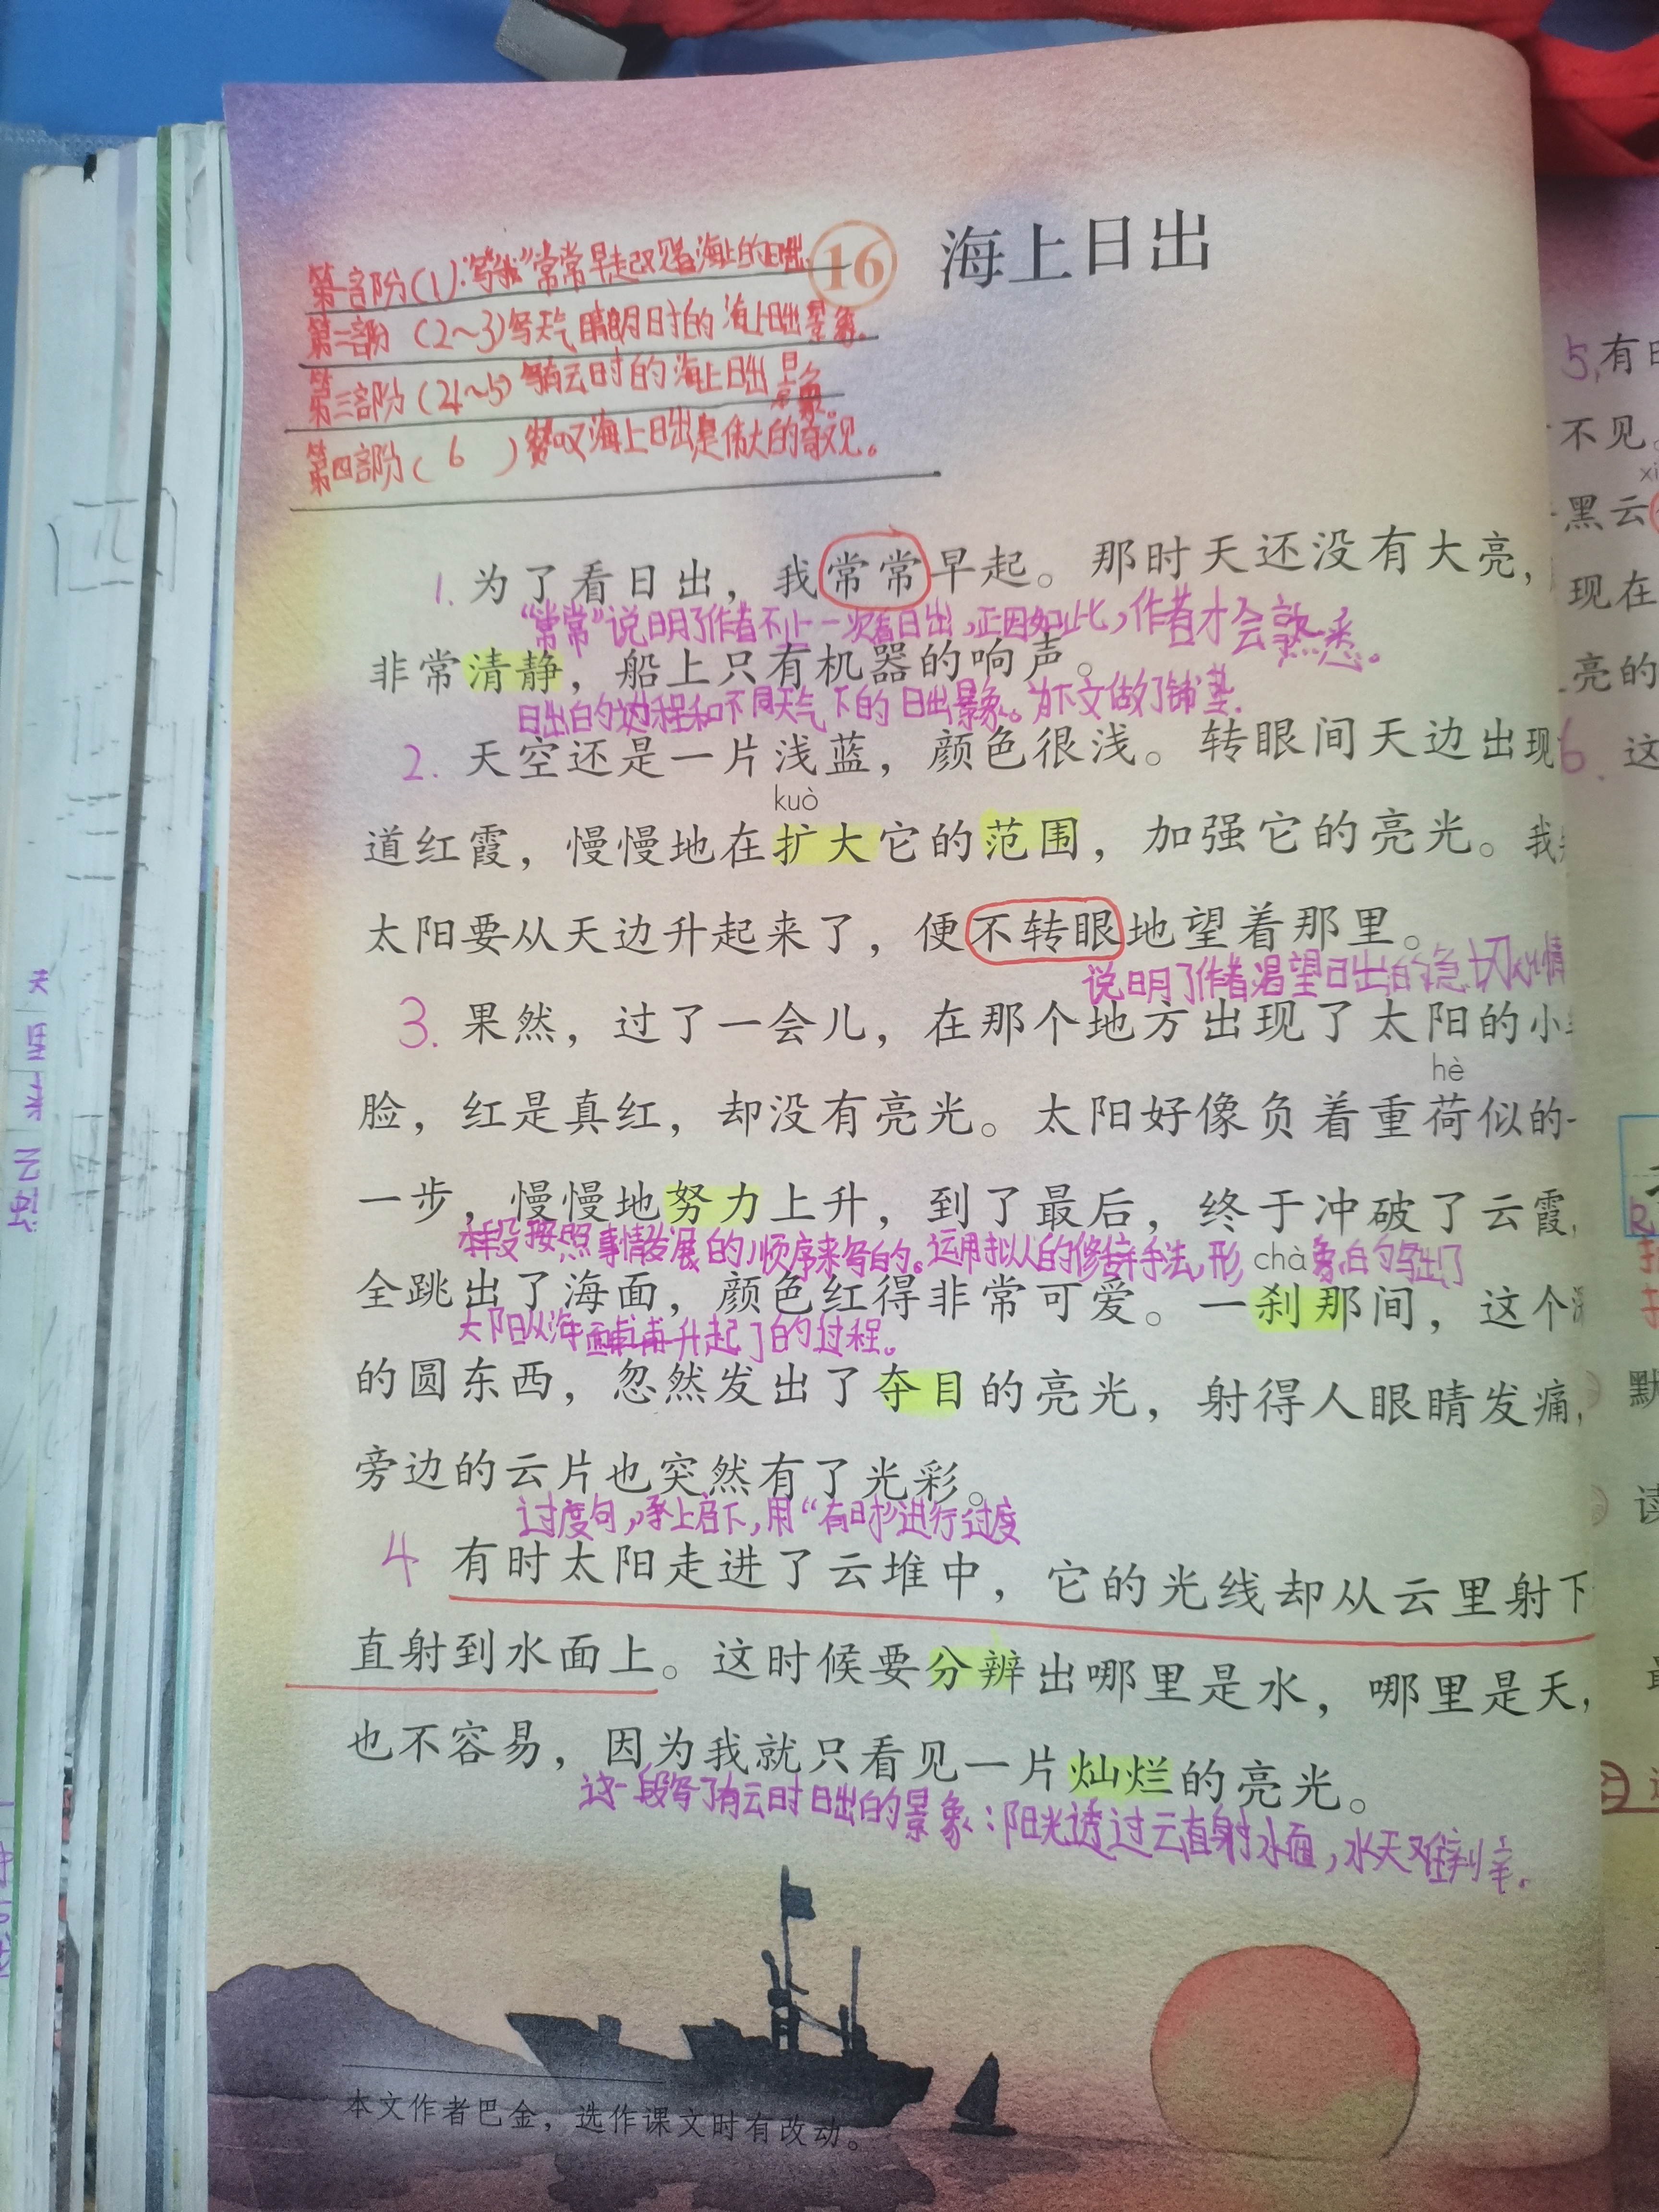 16 海上日出
第一部分(1):写"我"常常早起观看海上的日出.
第二部分(2~3)写天气晴朗时的海上日出景象。
第三部分(4~5)写有云时的海上日出景象。
第四部分(6)赞叹海上日出是伟大的奇观。
1. 为了看日出，我常常早起。那时天还没有大亮，
"常常"说明了作者不止一次看日出,正因如此,作者才会熟悉。
非常清静，船上只有机器的响声。
日出的过程和不同天气下的日出景象。为下文做了铺垫.
2. 天空还是一片浅蓝，颜色很浅。转眼间天边出现
kuò
道红霞，慢慢地在扩大它的范围，加强它的亮光。我
太阳要从天边升起来了，便不转眼地望着那里。
说明了作者渴望日出的急切心情
3. 果然，过了一会儿，在那个地方出现了太阳的小
hè
脸，红是真红，却没有亮光。太阳好像负着重荷似的一
一步，慢慢地努力上升，到了最后，终于冲破了云霞，
本段按照事情发展的顺序来写的。运用拟人的修辞手法,形象的写出了
chà
全跳出了海面，颜色红得非常可爱。一刹那间，这个
太阳从海面升起了的过程。
的圆东西，忽然发出了夺目的亮光，射得人眼睛发痛，
旁边的云片也突然有了光彩。
过度句,承上启下,用"有时"进行过度
4 有时太阳走进了云堆中，它的光线却从云里射下
直射到水面上。这时候要分辨出哪里是水，哪里是天，
也不容易，因为我就只看见一片灿烂的亮光。
这一段写了有云时日出的景象:阳光透过云直射水面,水天难辨。
本文作者巴金，选作课文时有改动。
5.有
不见。
xi
黑云
现在
亮的
6. 这
默
读